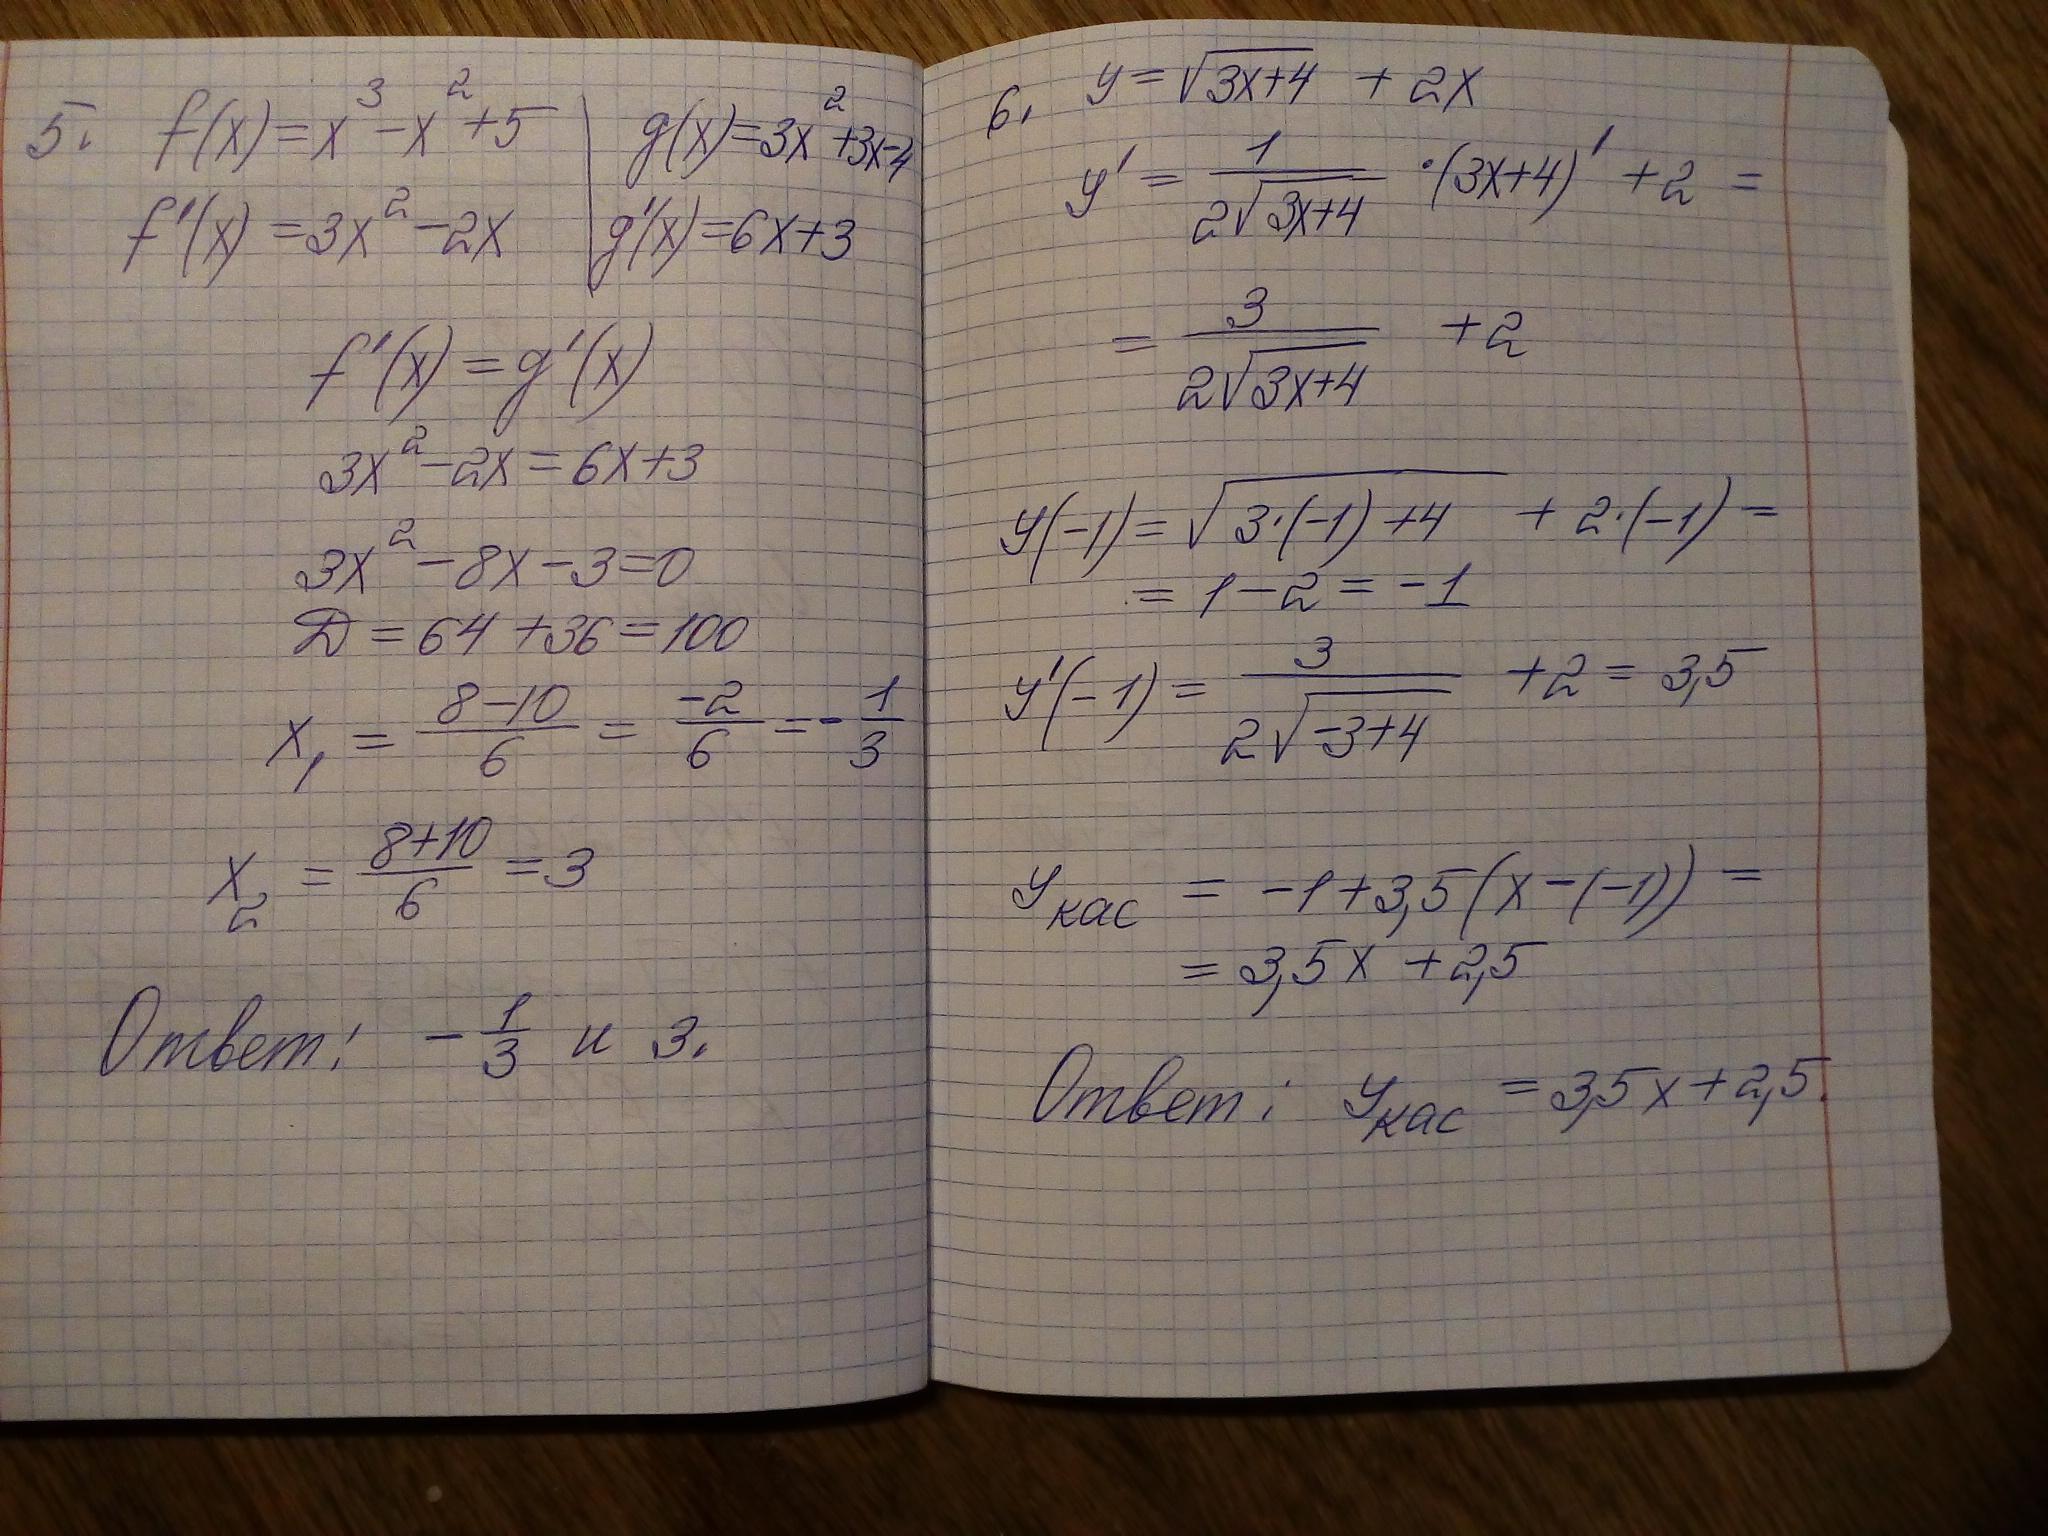 5. f(x)=x³-x²+5 | g(x)=3x²+3x-4
f'(x)=3x²-2x | g'(x)=6x+3
f'(x)=g'(x)
3x²-2x=6x+3
3x²-8x-3=0
D=64+36=100
x₁ = (8-10)/6 = -2/6 = -1/3
x₂ = (8+10)/6 = 3
Ответ: -1/3 и 3.
6. y=√(3x+4) + 2x
y' = 1/(2√(3x+4)) ·(3x+4)' +2 =
= 3/(2√(3x+4)) +2
y(-1)=√(3·(-1)+4) + 2·(-1)=
= 1-2 = -1
y'(-1) = 3/(2√(-3+4)) +2 = 3,5
yкас = -1+3,5(x-(-1)) =
= 3,5x +2,5
Ответ: yкас = 3,5x+2,5.